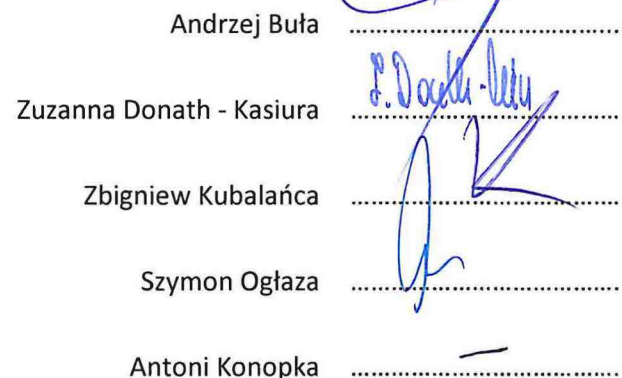 Andrzej Buła ........................................
Zuzanna Donath - Kasiura ........................................
Zbigniew Kubalańca ........................................
Szymon Ogłaza ........................................
Antoni Konopka ........................................